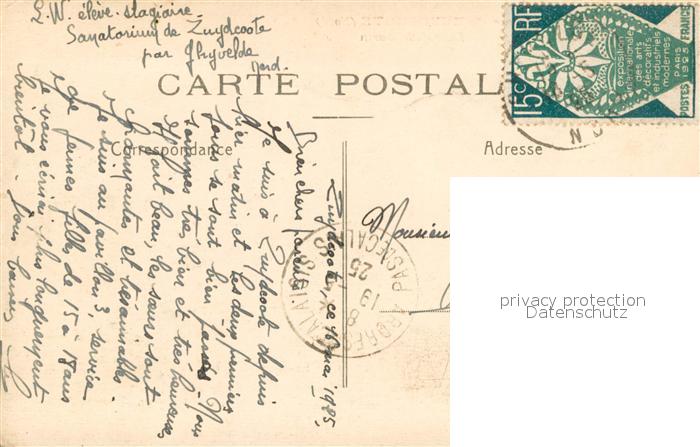 L. W. élève-stagiaire
Sanatorium de Zuydcoote
par Ghyvelde
Nord.
CARTE POSTALE
Correspondance
Adresse
Zuydcoote, ce 16 mai 1925
Bien chers
Je suis à Zuydcoote depuis
hier matin et les deux premiers
jours se sont bien passés. Nous
sommes très bien et très heureuses
Il fait beau, les sœurs sont
charmantes et
Je suis au pavillon 3, service
de jeunes filles de 15 à 18 ans
Je vous écrirai plus longuement
bientôt.
Monsieur
RF
15c
exposition
internationale
des arts
décoratifs
et industriels
modernes
PARIS
1925
POSTES FRANCE
ARDRES
PAS DE CALAIS
8
19
25
privacy protection
Datenschutz